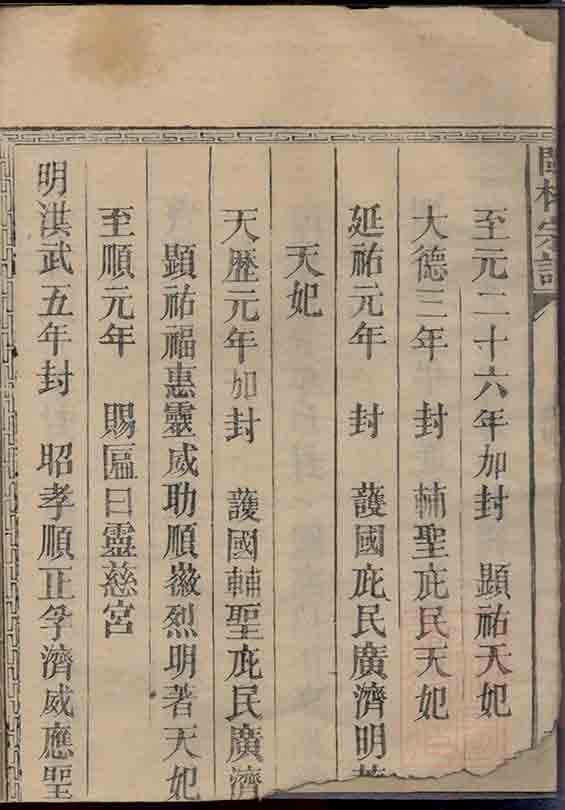 林宗譜
至元二十六年加封 顯祐天妃
大德三年 封 輔聖庇民天妃
延祐元年 封 護國庇民廣濟明
天妃
天歷元年加封 護國輔聖庇民廣濟
顯祐福惠靈威助順徽烈明著天妃
至順元年 賜匾曰靈慈宮
明洪武五年封 昭孝順正孚濟威應聖